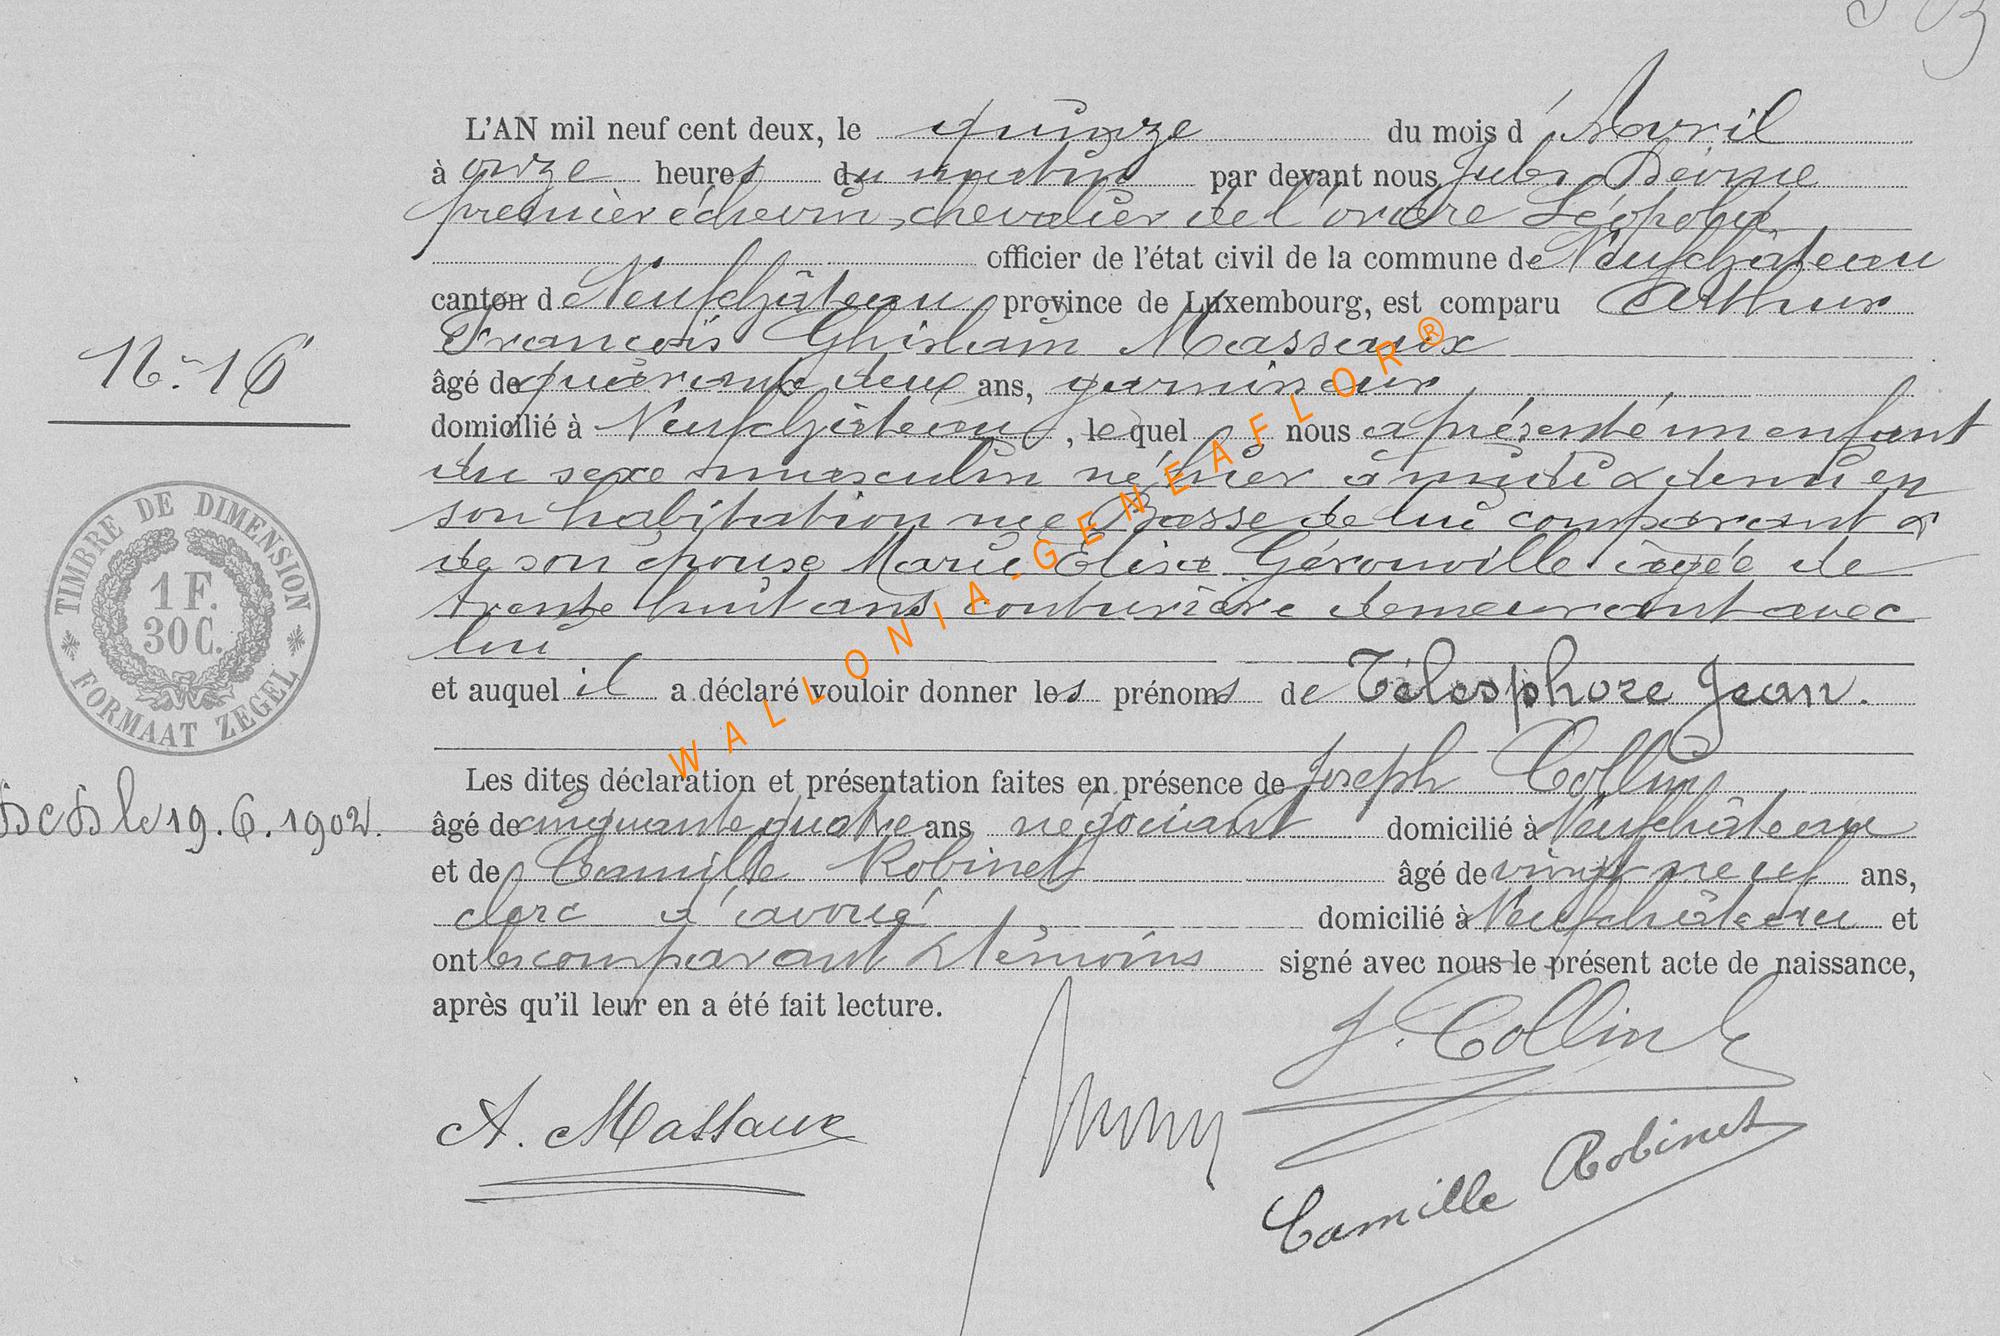 L'AN mil neuf cent deux, le quinze du mois d'Avril
à onze heures du matin par devant nous Jules
premier échevin, chevalier de l'ordre Léopold,
officier de l'état civil de la commune de Neufchâteau
canton de Neufchâteau, province de Luxembourg, est comparu Arthur
François Ghislain Massaux
âgé de quarante deux ans, garnisseur
domicilié à Neufchâteau, lequel nous a présenté un enfant
du sexe masculin né hier à midi & demi en
son habitation rue Basse de lui comparant &
de son épouse Marie Elisa Gérouville âgée de
trente huit ans, couturière demeurant avec
lui
et auquel il a déclaré vouloir donner les prénoms de Télesphore Jean.
Les dites déclaration et présentation faites en présence de Joseph Collin,
âgé de cinquante quatre ans négociant domicilié à Neufchâteau
et de Camille Robinet âgé de vingt neuf ans,
clerc d'avoué domicilié à Neufchâteau et
ont les comparant & témoins signé avec nous le présent acte de naissance,
après qu'il leur en a été fait lecture.
J. Collin
A. Massaux
Camille Robinet
N° 16
TIMBRE DE DIMENSION
1 F.
30 C.
FORMAAT ZEGEL
le 19.6.1902.
WALLONIA-GENEAFLOR®